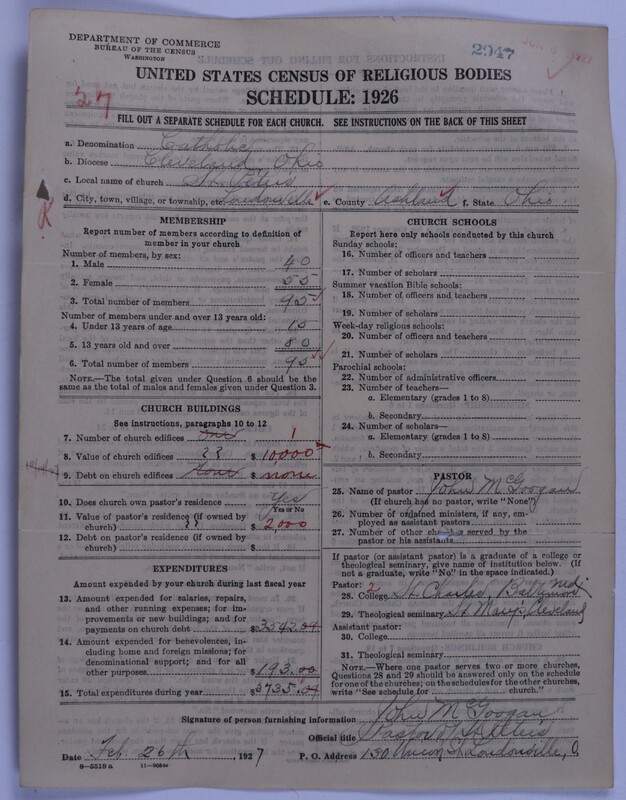 DEPARTMENT OF COMMERCE
BUREAU OF THE CENSUS
WASHINGTON
2947
UNITED STATES CENSUS OF RELIGIOUS BODIES
SCHEDULE: 1926
27
FILL OUT A SEPARATE SCHEDULE FOR EACH CHURCH. SEE INSTRUCTIONS ON THE BACK OF THIS SHEET
a. Denomination Catholic
b. Diocese Cleveland, Ohio
c. Local name of church St. Peters
d. City, town, village, or township, etc. Loudonville e. County Ashland f. State Ohio
MEMBERSHIP
Report number of members according to definition of member in your church
Number of members, by sex:
1. Male 40
2. Female 55
3. Total number of members 95
Number of members under and over 13 years old:
4. Under 13 years of age 15
5. 13 years old and over 80
6. Total number of members 95
NOTE.—The total given under Question 6 should be the same as the total of males and females given under Question 3.
CHURCH BUILDINGS
See instructions, paragraphs 10 to 12
7. Number of church edifices one 1
8. Value of church edifices ?? $ 10000
9. Debt on church edifices None $ none
10. Does church own pastor's residence Yes
Yes or No
11. Value of pastor's residence (if owned by church) ?? $ 2000
12. Debt on pastor's residence (if owned by church) $
EXPENDITURES
Amount expended by your church during last fiscal year
13. Amount expended for salaries, repairs, and other running expenses; for improvements or new buildings; and for payments on church debt $3542.04
14. Amount expended for benevolences, including home and foreign missions; for denominational support; and for all other purposes $193.00
15. Total expenditures during year $3735.04
CHURCH SCHOOLS
Report here only schools conducted by this church
Sunday schools:
16. Number of officers and teachers
17. Number of scholars
Summer vacation Bible schools:
18. Number of officers and teachers
19. Number of scholars
Week-day religious schools:
20. Number of officers and teachers
21. Number of scholars
Parochial schools:
22. Number of administrative officers
23. Number of teachers—
a. Elementary (grades 1 to 8)
b. Secondary
24. Number of scholars—
a. Elementary (grades 1 to 8)
b. Secondary
PASTOR
25. Name of pastor John McGoogan
(If church has no pastor, write "None")
26. Number of ordained ministers, if any, employed as assistant pastors
27. Number of other churches served by the pastor or his assistants
If pastor (or assistant pastor) is a graduate of a college or theological seminary, give name of institution below. (If not a graduate, write "No" in the space indicated.)
Pastor: 2
28. College St Charles, Baltimore Md.
29. Theological seminary St Marys, Cleveland
Assistant pastor:
30. College
31. Theological seminary
NOTE.—Where one pastor serves two or more churches, Questions 28 and 29 should be answered only on the schedule for one of the churches; on the schedules for the other churches, write "See schedule for church."
Signature of person furnishing information John McGoogan
Official title Pastor St Peters
Date Feb. 26th, 1927 P. O. Address 130 Union St Loudonville, O.
8—5518 a